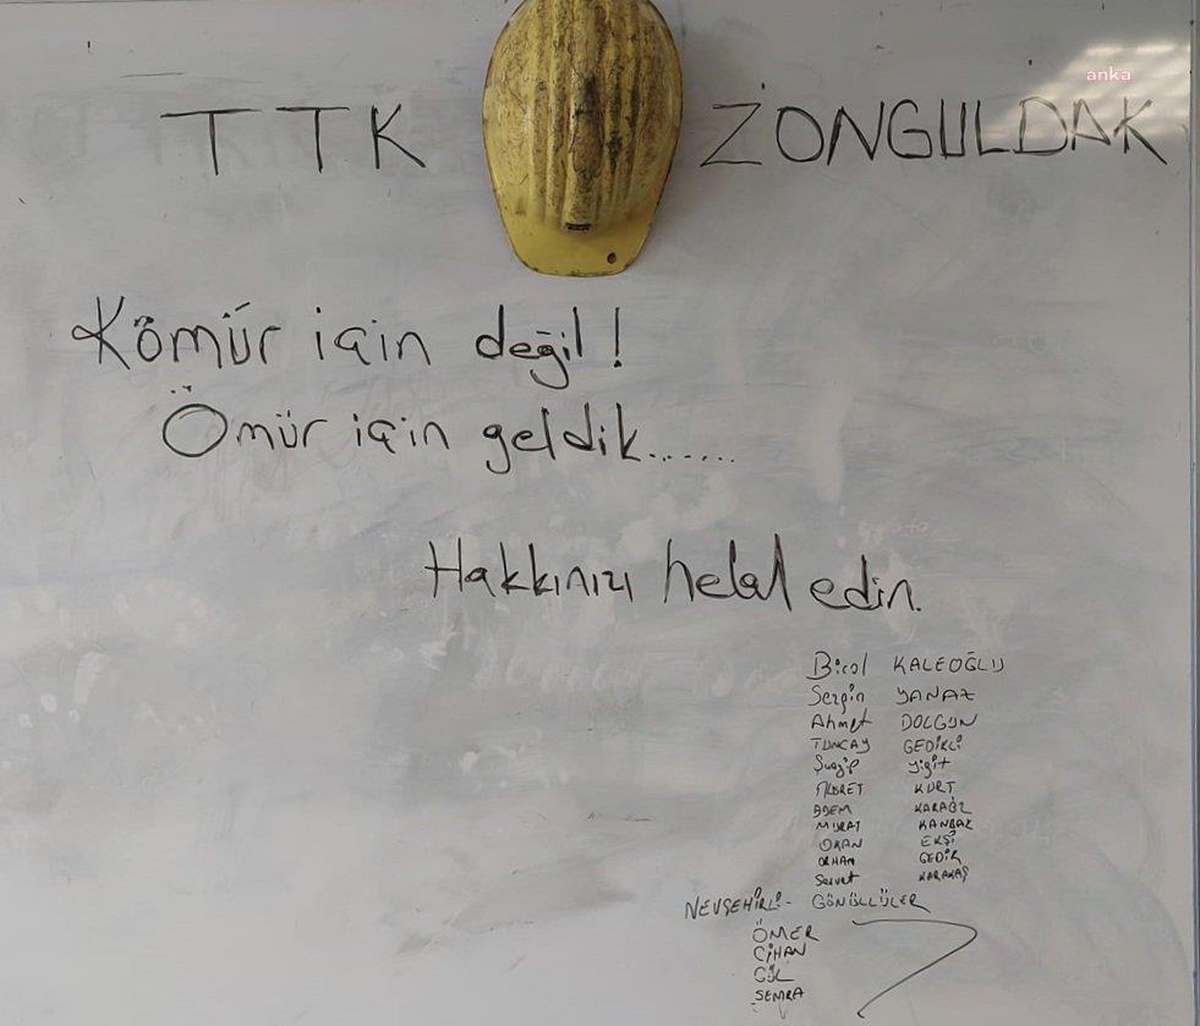 anka
TTK ZONGULDAK
Kömür için değil!
Ömür için geldik.......
Hakkınızı helal edin.
Birol KALEOĞLU
Sezgin YANAZ
Ahmet DOLGUN
TUNCAY GEDİKLİ
Yiğit
NUSRET KURT
ADEM
MURAT KANBAZ
OKAN EKŞİ
ORHAN GEDİK
Servet KARAKAŞ
NEVŞEHİRLİ- GÖNÜLLÜLER
ÖMER
CİHAN
GÜL
SEMRA